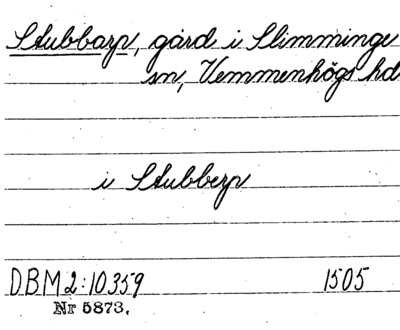 Stubbarp, gård i Slimminge
sn, Vemmenhögs hd
i Stubberp
DBM 2:10359 1505
Nr 5873.